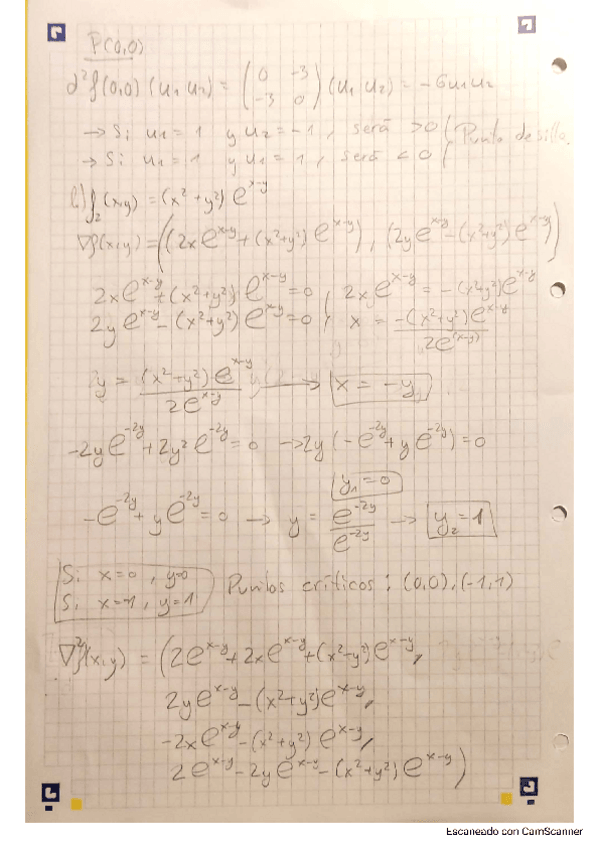 P(0,0)
d²f(0,0) (u₁ u₂) = ( 0 -3 ) (u₁ u₂) = -6u₁u₂
( -3 0 )
→ Si u₁ = 1 y u₂ = -1, será >0 ( Punto de silla.
→ Si u₁ = 1 y u₁ = 1, será <0 (
f₂(x,y) = (x² + y²) e^x-y
∇f(x,y) = ((2x e^x-y + (x²+y²) e^x-y), (2y e^x-y - (x²+y²) e^x-y))
2x e^x-y + (x²+y²) e^x-y = 0 , 2x e^x-y = -(x²+y²) e^x-y
2y e^x-y - (x²+y²) e^x-y = 0 , x = -(x²+y²) e^x-y / 2e^(x-y)
y = (x²+y²) e^x-y / 2e^x-y → x = -y
-2y e^-2y + 2y² e^-2y = 0 → 2y (-e^-2y + y e^-2y) = 0
y₁ = 0
-e^-2y + y e^-2y = 0 → y = e^-2y / e^-2y → y₂ = 1
Si x=0, y=0
Si x=-1, y=1
Puntos críticos: (0,0), (-1,1)
∇²f(x,y) = (2e^x-y + 2x e^x-y + (x²-y²) e^x-y,
2y e^x-y - (x²+y²) e^x-y,
-2x e^x-y - (x²+y²) e^x-y,
2e^x-y - 2y e^x-y - (x²+y²) e^x-y)
Escaneado con CamScanner